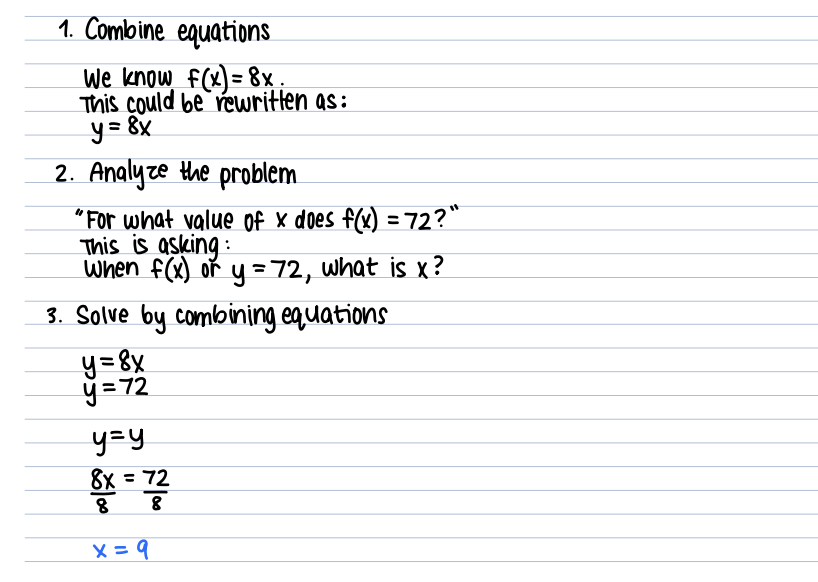 1. Combine equations
We know f(x) = 8x.
This could be rewritten as:
y = 8x
2. Analyze the problem
"For what value of x does f(x) = 72?"
This is asking:
When f(x) or y = 72, what is x?
3. Solve by combining equations
y = 8x
y = 72
y = y
8x = 72
8 8
x = 9